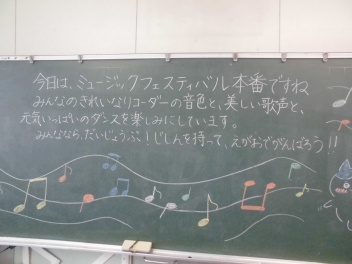 今日は、ミュージックフェスティバル本番ですね
みんなのきれいなリコーダーの音色と、美しい歌声と、
元気いっぱいのダンスを楽しみにしています。
みんななら、だいじょうぶ！じしんを持って、えがおでがんばろう!!